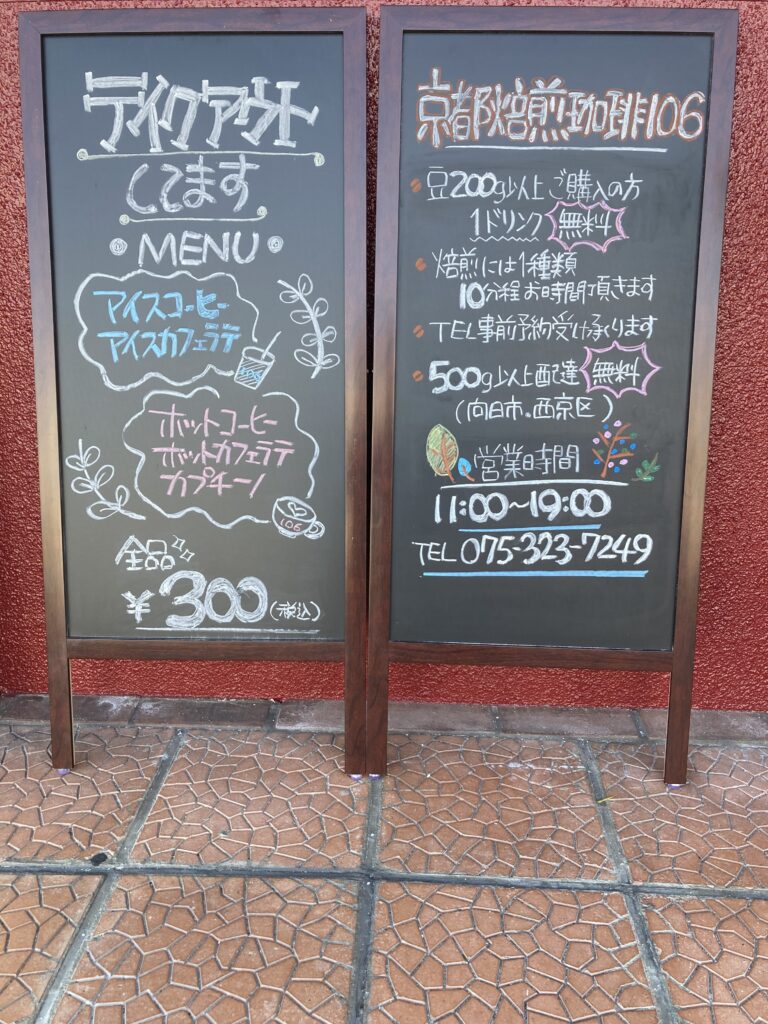 テイクアウト
してます
MENU
アイスコーヒー
アイスカフェラテ
106
ホットコーヒー
ホットカフェラテ
カプチーノ
106
全品
¥300(税込)
京都焙煎珈琲106
豆200g以上ご購入の方
1ドリンク 無料
焙煎には1種類
10分程お時間頂きます
TEL事前予約受け承ります
500g以上配達 無料
(向日市.西京区)
営業時間
11:00~19:00
TEL 075-323-7249